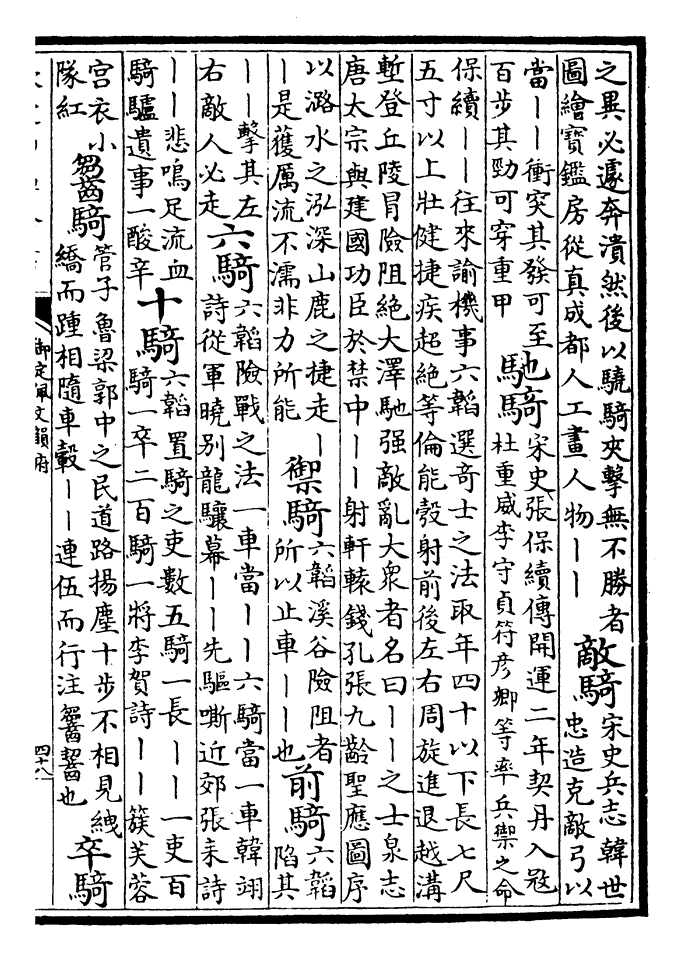 之異必遽奔潰然後以驍騎夾擊無不勝者
圖繪寶鑑房從真成都人工畫人物丨丨
敵騎
宋史兵志韓世
忠造克敵弓以
當丨丨衝突其發可至
百步其勁可穿重甲
馳騎
宋史張保續傳開運二年契丹入冦
杜重威李守貞符彦卿等率兵禦之命
保續丨丨往來諭機事六韜選竒士之法取年四十以下長七尺
五寸以上壯健捷疾超絕等倫能彀射前後左右周旋進退越溝
塹登丘陵冒險阻絕大澤馳强敵亂大衆者名曰丨丨之士泉志
唐太宗與建國功臣於禁中丨丨射軒轅錢孔張九齡聖應圖序
以潞水之泓深山鹿之捷走丨
丨是蒦厲流不濡非力所能
禦騎
六韜溪谷險阻者
所以止車丨丨也
前騎
六韜
陷其
丨丨擊其左
右敵人必走
六騎
六韜險戰之法一車當丨丨六騎當一車韓翊
詩從軍曉别龍驤幕丨丨先驅嘶近郊張耒詩
丨丨悲鳴足流血
騎驢遺事一酸辛
十騎
六韜置騎之吏數五騎一長丨丨一吏百
騎一卒二百騎一將李賀詩丨丨簇芙蓉
宫衣小
隊紅
齺騎
管子魯梁郭中之民道路揚塵十步不相見絏
繑而踵相隨車轂丨丨連伍而行注齺齧也
卒騎
御定佩文韻府
四十八